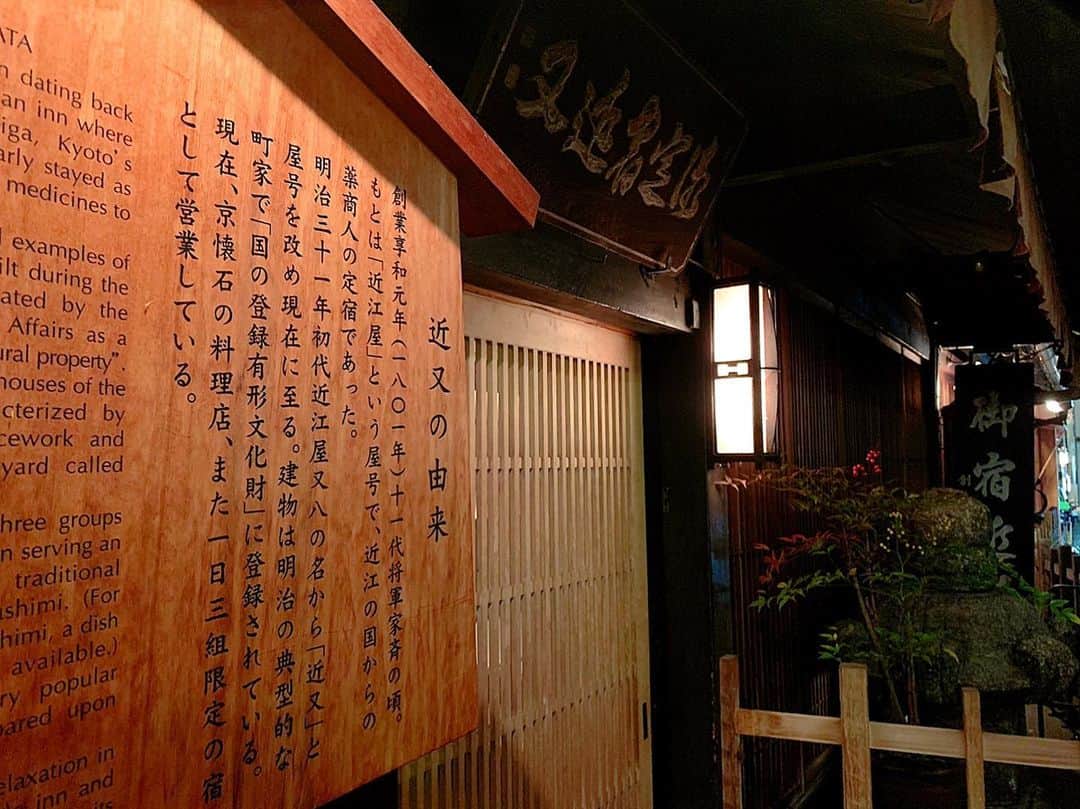 近又の由来
創業享和元年（一八〇一年）十一代将軍家斉の頃。
もとは「近江屋」という屋号で、近江の国からの
薬商人の定宿であった。
明治三十一年初代近江屋又八の名から「近又」と
屋号を改め現在に至る。建物は明治の典型的な
町家で「国の登録有形文化財」に登録されている。
現在、京懐石の料理店、また一日三組限定の宿
として営業している。
ATA
dating back
an inn where
iga, Kyoto's
arly stayed as
medicines to
examples of
ilt during the
ated by the
Affairs as a
ural property".
houses of the
cterized by
cework and
yard called
hree groups
n serving an
traditional
ashimi. (For
himi, a dish
available.)
ry popular
pared upon
elaxation in
inn and
御宿